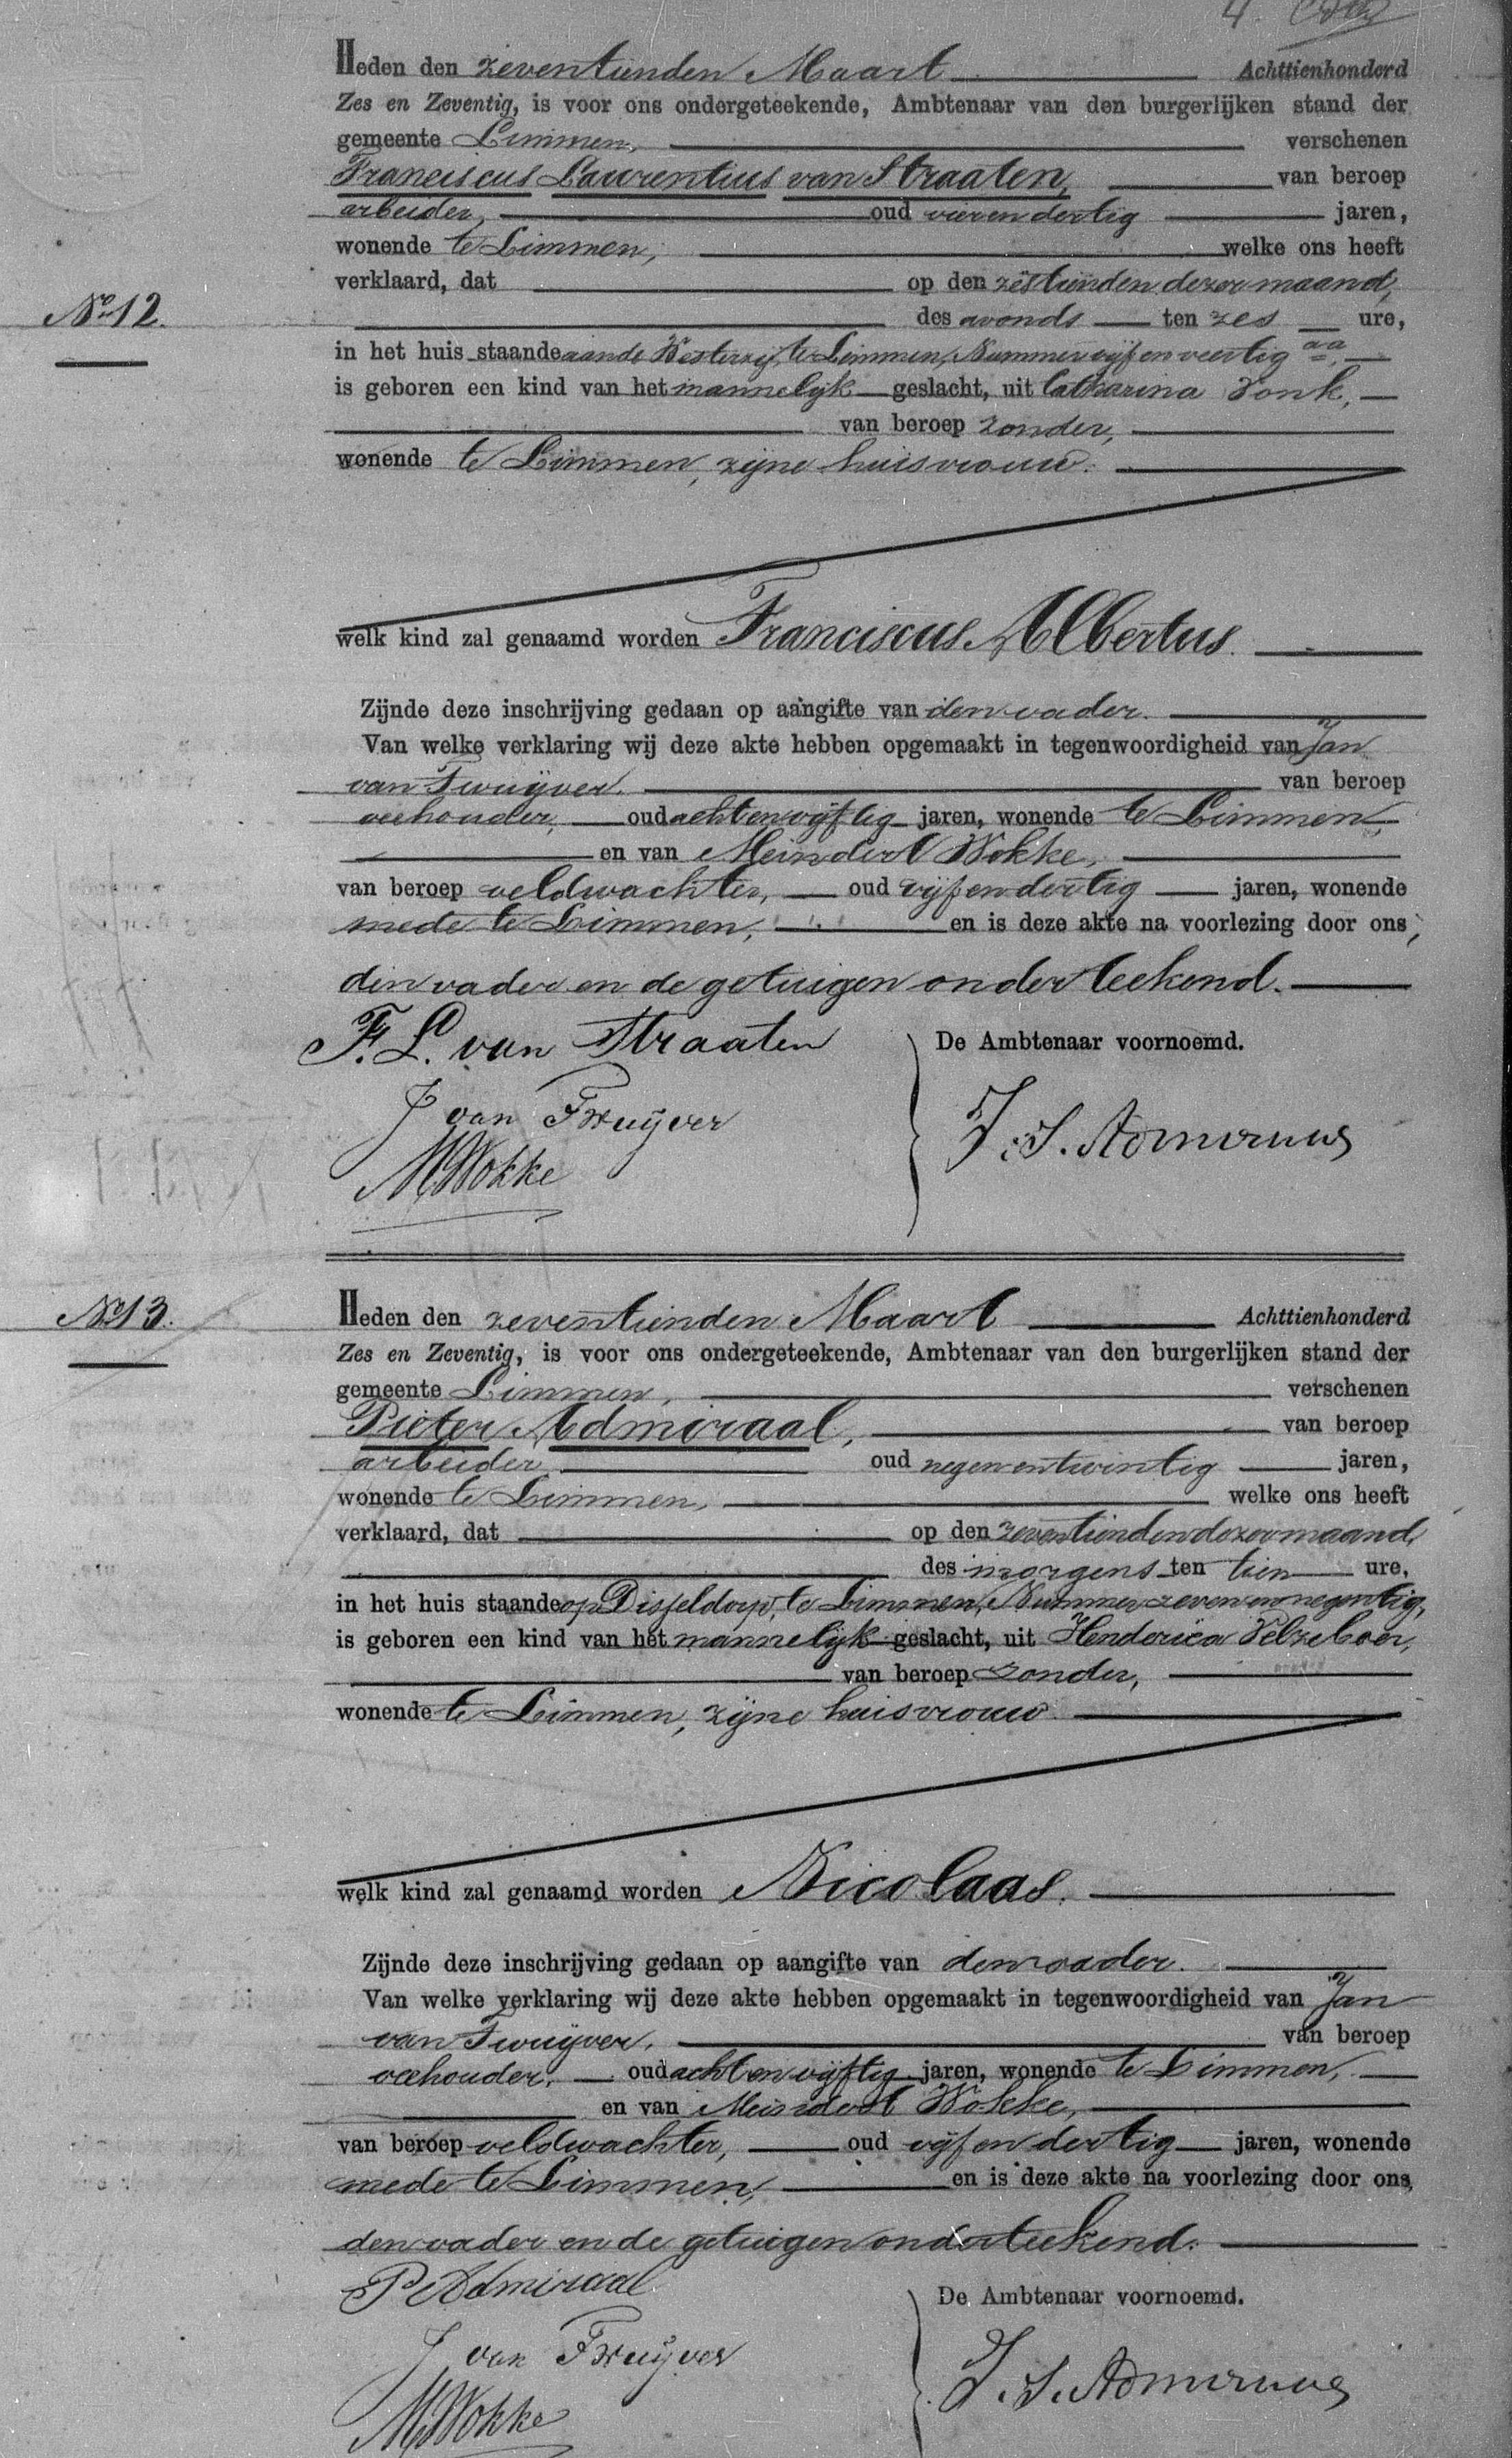 4.
Heden den zeventienden Maart Achttienhonderd
Zes en Zeventig, is voor ons ondergeteekende, Ambtenaar van den burgerlijken stand der
gemeente Limmen, verschenen
Franciscus Laurentius van Straaten, van beroep
arbeider, oud vier en dertig jaren,
wonende te Limmen, welke ons heeft
verklaard, dat op den zestienden dezer maand,
No 12. des avonds ten zes ure,
in het huis staande aan de Westerzij, te Limmen, Nummer vijf en veertig aa,
is geboren een kind van het mannelijk geslacht, uit Catharina Zonk,
van beroep zonder,
wonende te Limmen, zijne huisvrouw.
welk kind zal genaamd worden Franciscus Albertus.
Zijnde deze inschrijving gedaan op aangifte van den vader.
Van welke verklaring wij deze akte hebben opgemaakt in tegenwoordigheid van Jan
van Twuijver. van beroep
veehouder, oud acht en vijftig jaren, wonende te Limmen,
en van Meindert Wokke,
van beroep veldwachter, oud vijf en dertig jaren, wonende
mede te Limmen, en is deze akte na voorlezing door ons,
den vader en de getuigen onderteekend.
F. L. van Straaten De Ambtenaar voornoemd.
J van Twuijver
M Wokke
No 13. Heden den zeventienden Maart Achttienhonderd
Zes en Zeventig, is voor ons ondergeteekende, Ambtenaar van den burgerlijken stand der
gemeente Limmen, verschenen
Pieter Admiraal, van beroep
arbeider oud negen en twintig jaren,
wonende te Limmen, welke ons heeft
verklaard, dat op den zeventienden dezer maand,
des morgens ten tien ure,
in het huis staande op Disseldorp, te Limmen, Nummer zeven en negentig,
is geboren een kind van het mannelijk geslacht, uit Henderica Pelzeboer,
van beroep zonder,
wonende te Limmen, zijne huisvrouw
welk kind zal genaamd worden Nicolaas.
Zijnde deze inschrijving gedaan op aangifte van den vader.
Van welke verklaring wij deze akte hebben opgemaakt in tegenwoordigheid van Jan
van Twuijver, van beroep
veehouder, oud acht en vijftig jaren, wonende te Limmen,
en van Meindert Wokke,
van beroep veldwachter, oud vijf en dertig jaren, wonende
mede te Limmen, en is deze akte na voorlezing door ons,
den vader en de getuigen onderteekend.
P Admiraal De Ambtenaar voornoemd.
J van Twuijver
M Wokke